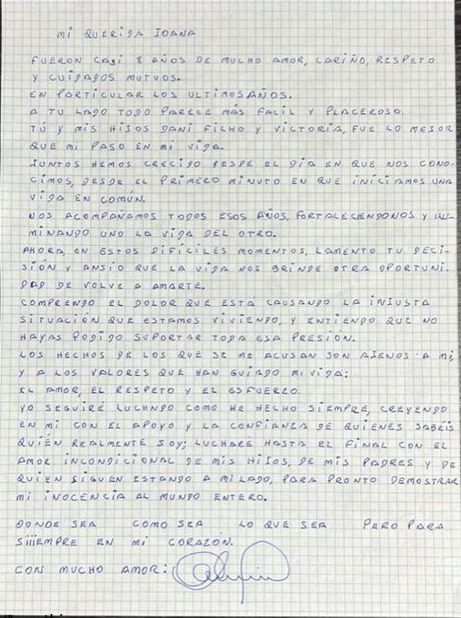 MI QUERIDA JOANA
FUERON CASI 8 AÑOS DE MUCHO AMOR, CARIÑO, RESPETO
Y CUIDADOS MUTUOS.
EN PARTICULAR LOS ULTIMOS AÑOS.
A TU LADO TODO PARECE MÁS FACIL Y PLACEROSO.
TÚ Y MIS HIJOS DANI FILHO Y VICTORIA, FUE LO MEJOR
QUE MI PASO EN MI VIDA.
JUNTOS HEMOS CRECIDO DESDE EL DÍA EN QUE NOS CONO-
CIMOS, DESDE EL PRIMERO MINUTO EN QUE INICIAMOS UNA
VIDA EN COMÚN.
NOS ACOMPAÑAMOS TODOS ESOS AÑOS, FORTALECENDONOS Y ILU-
MINANDO UNO LA VIDA DEL OTRO.
AHORA, EN ESTOS DIFÍCILES MOMENTOS, LAMENTO TU DECI-
SIÓN Y ANSIO QUE LA VIDA NOS BRINDE OTRA OPORTUNI-
DAD DE VOLVE A AMARTE.
COMPRENDO EL DOLOR QUE ESTA CAUSANDO LA INJUSTA
SITUACIÓN QUE ESTAMOS VIVIENDO, Y ENTIENDO QUE NO
HAYAS PODIDO SUPORTAR TODA ESA PRESIÓN.
LOS HECHOS DE LOS QUE SE ME ACUSAN SON AJENOS A MI,
Y A LOS VALORES QUE HAN GUIADO MI VIDA:
EL AMOR, EL RESPETO Y EL ESFUERZO.
YO SEGUIRÉ LUCHNDO COMO HE HECHO SIEMPRE, CREYENDO
EN MI CON EL APOYO Y LA CONFIANZA DE QUIENES SABEIS
QUIÉN REALMENTE SOY; LUCHARE HASTA EL FINAL CON EL
AMOR INCONDICIONAL DE MIS HIJOS, DE MIS PADRES Y DE
QUIEN SIGUEN ESTANDO A MI LADO, PARA PRONTO DEMOSTRAR
MI INOCENCIA AL MUNDO ENTERO.
DONDE SEA COMO SEA LO QUE SEA PERO PARA
SIIIEMPRE EN MI CORAZÓN.
CON MUCHO AMOR: